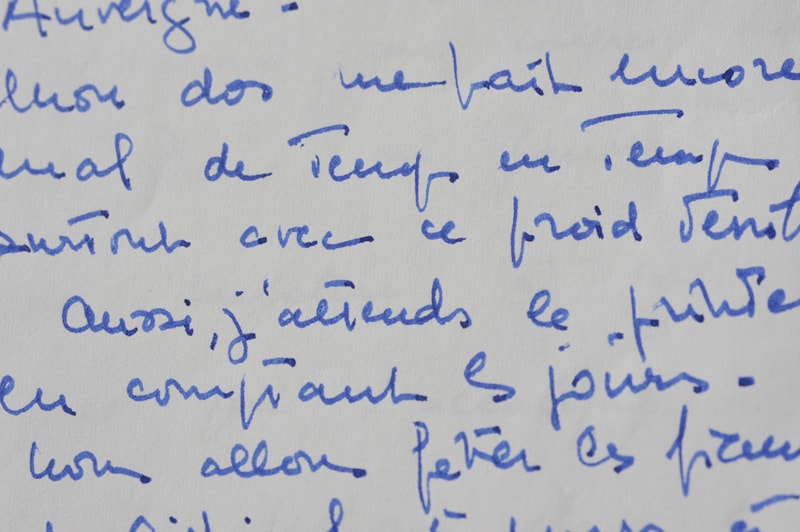 Auvergne.
mon dos me fait encore
mal de temps en temps
surtout avec ce froid
Aussi, j'attends le printe
en comptant les jours.
Nous allons fêter les